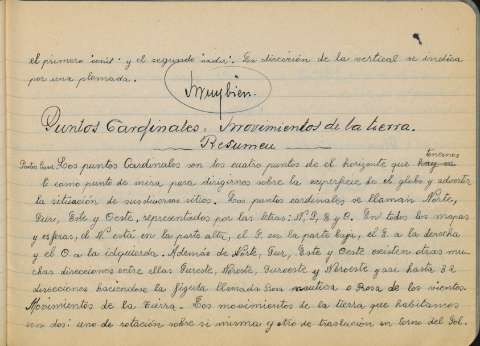 el primero cénit: y el segundo nadir. La dirección de la vertical se indica
por una plomada.
Muy bien.
Puntos Cardinales. Movimientos de la tierra.
Resumen
Tenemos
Los puntos Cardinales son los cuatro puntos de el horizonte que hay en
te como punto de mira para dirigirnos sobre la superficie de el globo y advertir
la situación de sus diversos sitios. Los puntos cardinales se llaman Norte,
Sur, Este y Oeste, representados por las letras: N. S, E y O. En todos los mapas
y esferas, el N. está en la parte alta, el S. en la parte baja, el E. a la derecha
y el O. a la izquierda. Además de Norte, Sur, Este y Oeste existen otras mu-
chas direcciones entre ellas Sureste, Noreste, Suroeste y Noroeste y así hasta 32
direcciones haciendose la figura llamada Rosa nautica o Rosa de los vientos.
Movimientos de la tierra. Los movimientos de la tierra que habitamos
son dos: uno de rotación sobre si misma y otro de traslación en torno del Sol.